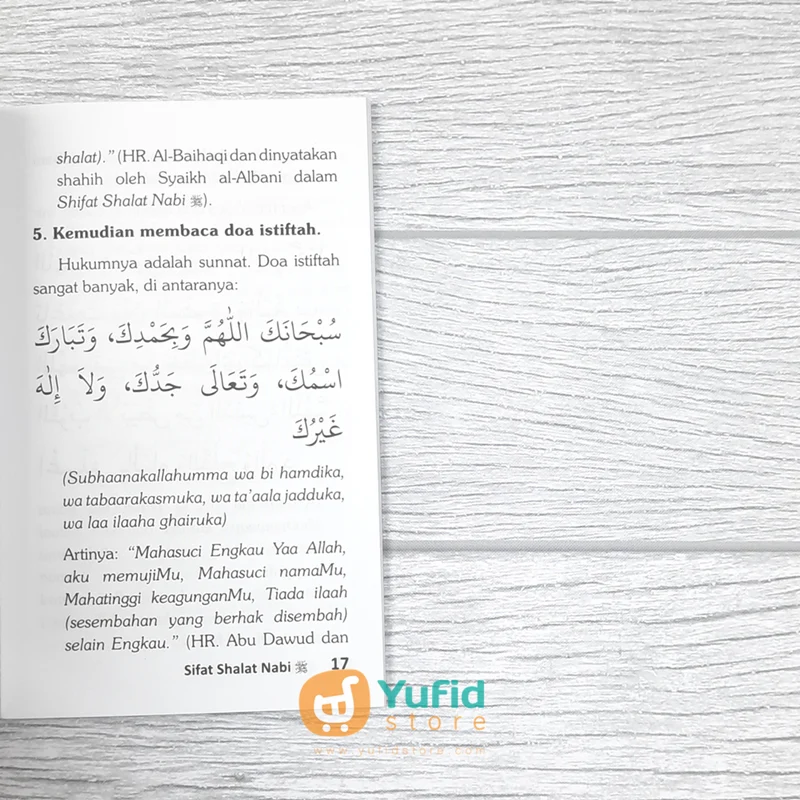 shalat).” (HR. Al-Baihaqi dan dinyatakan
shahih oleh Syaikh al-Albani dalam
Shifat Shalat Nabi ﷺ).
5. Kemudian membaca doa istiftah.
Hukumnya adalah sunnat. Doa istiftah
sangat banyak, di antaranya:
سُبْحَانَكَ اللّٰهُمَّ وَبِحَمْدِكَ، وَتَبَارَكَ
اسْمُكَ، وَتَعَالَى جَدُّكَ، وَلاَ إِلٰهَ
غَيْرُكَ
(Subhaanakallahumma wa bi hamdika,
wa tabaarakasmuka, wa ta’aala jadduka,
wa laa ilaaha ghairuka)
Artinya: “Mahasuci Engkau Yaa Allah,
aku memujiMu, Mahasuci namaMu,
Mahatinggi keagunganMu, Tiada ilaah
(sesembahan yang berhak disembah)
selain Engkau.” (HR. Abu Dawud dan
Sifat Shalat Nabi ﷺ 17
Yufid
store
www.yufidstore.com